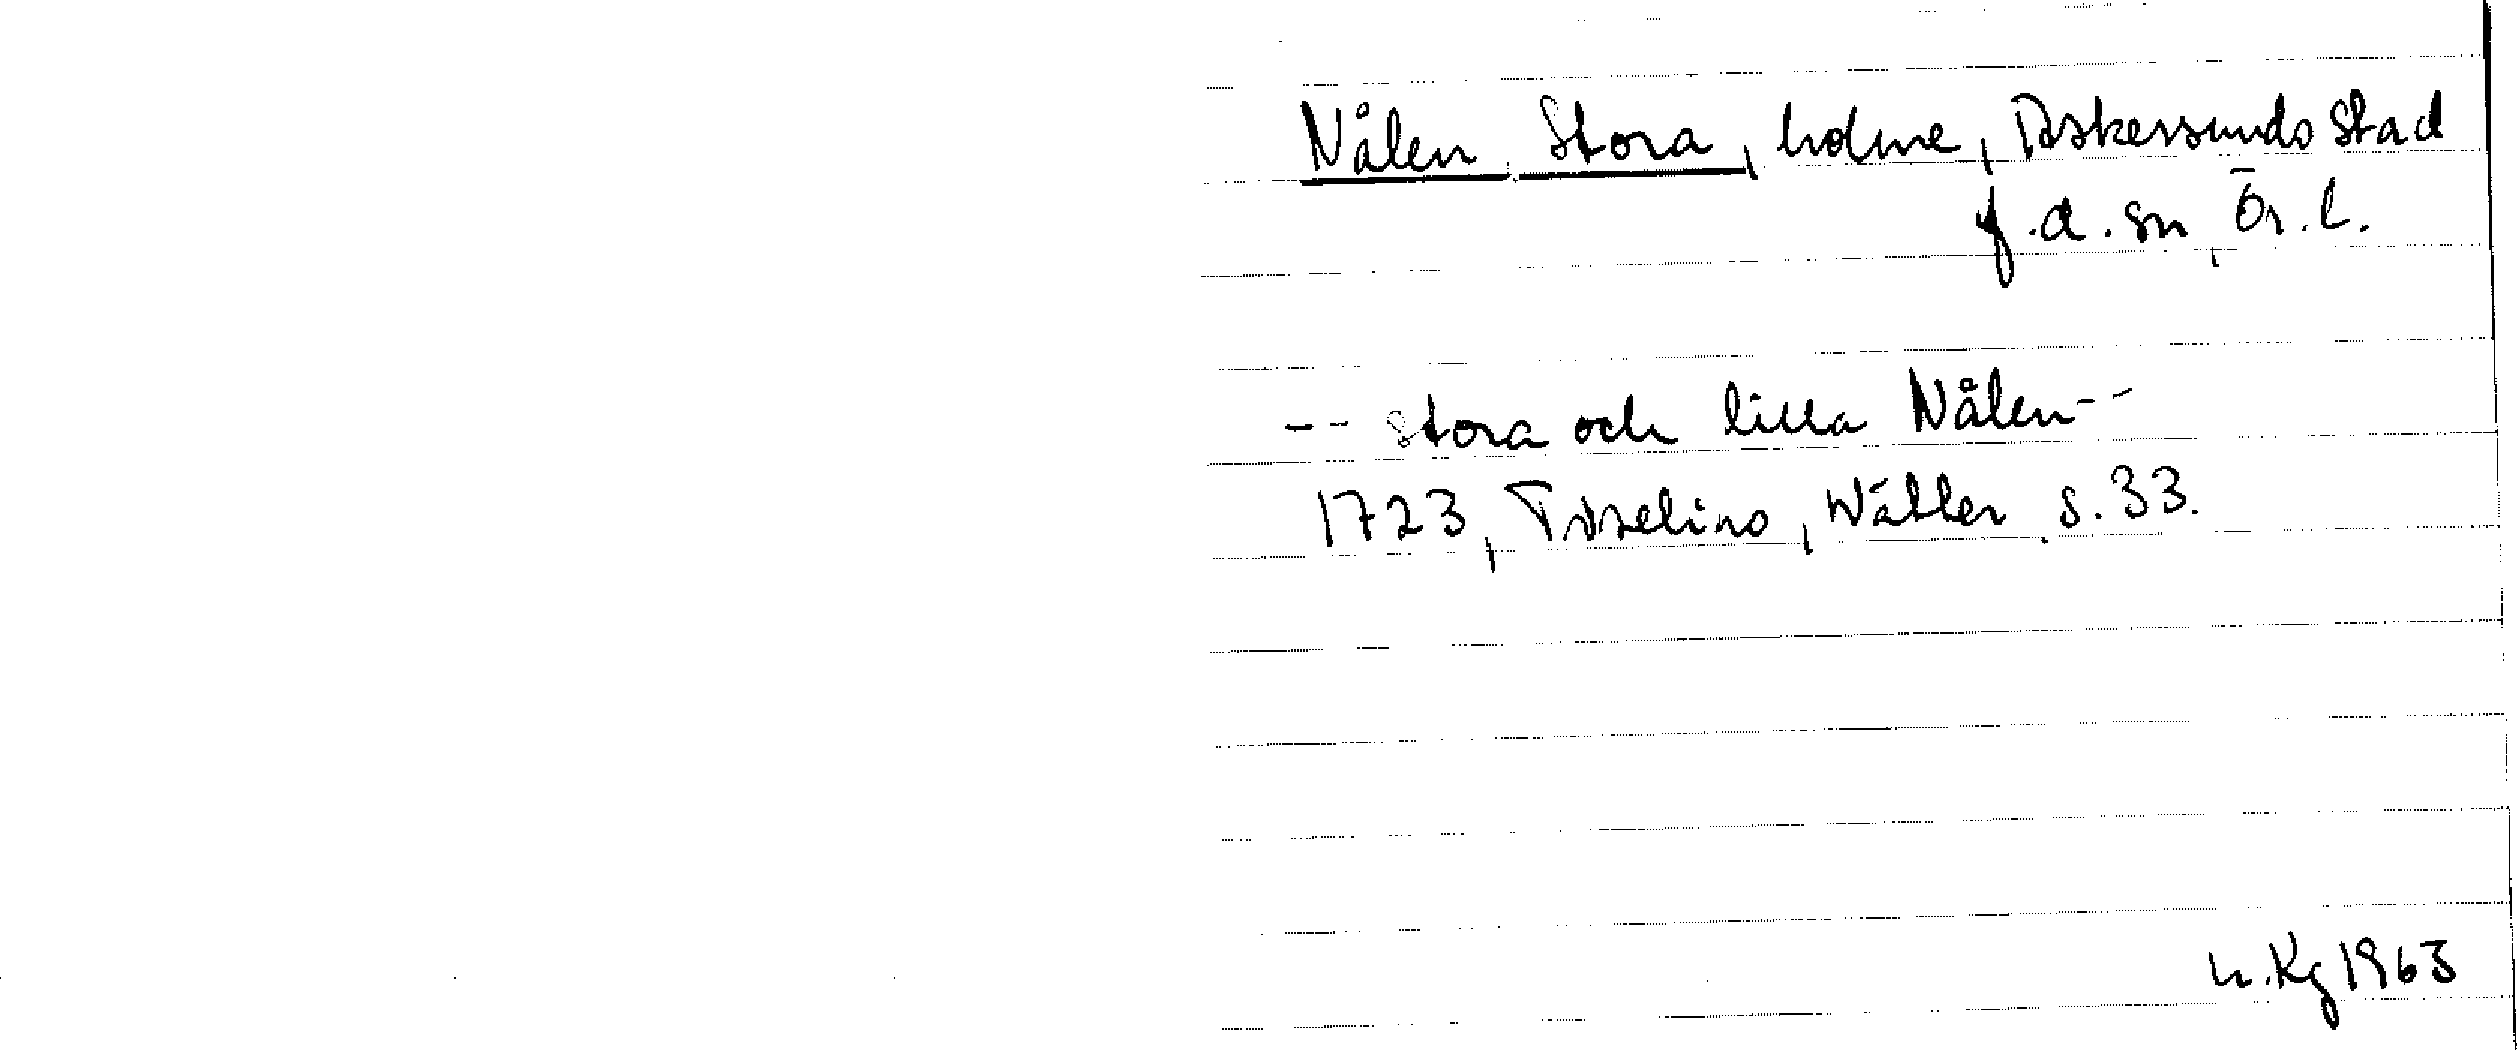 Nålen, Stora, holme, Askersunds stad
f.d. sn, Ör. l.
-- Stora och lilla Nålen --
1723, Tiselius, Wätter s. 33.
n.Kg 1963